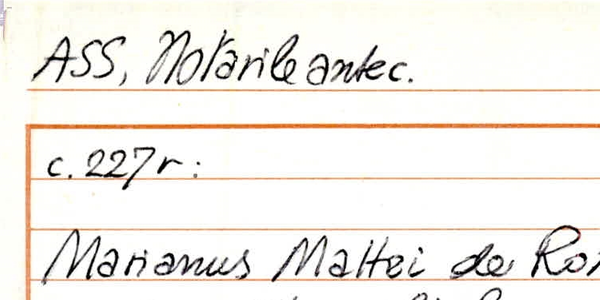 ASS, Notarile antec.
c. 227r:
Marianus Mattei de